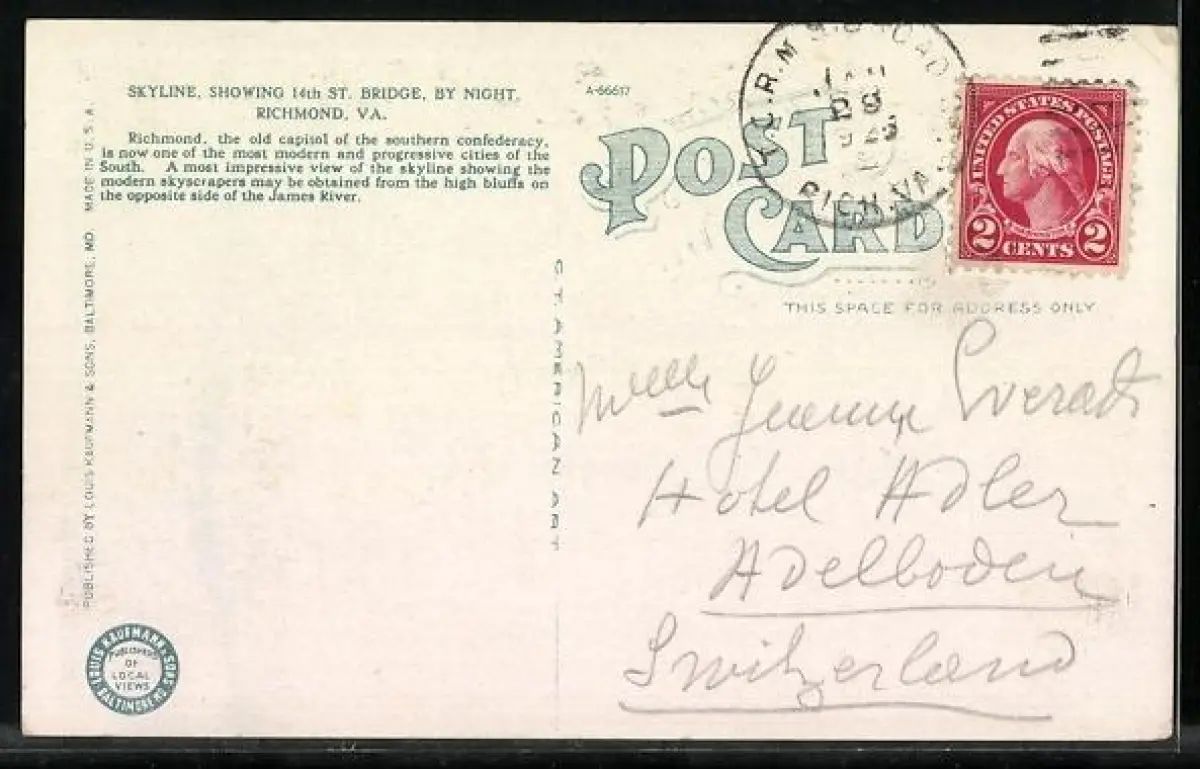 SKYLINE, SHOWING 14th ST. BRIDGE, BY NIGHT,
RICHMOND, VA.
Richmond, the old capitol of the southern confederacy,
is now one of the most modern and progressive cities of the
South. A most impressive view of the skyline showing the
modern skyscrapers may be obtained from the high bluffs on
the opposite side of the James River.
PUBLISHED BY LOUIS KAUFMANN & SONS, BALTIMORE, MD. MADE IN U.S.A.
LOUIS KAUFMANN & SONS BALTIMORE MD.
PUBLISHERS
OF
LOCAL
VIEWS
C.T. AMERICAN ART
A-66617
POST
CARD
THIS SPACE FOR ADDRESS ONLY
R.M.S.
28
RICH. VA.
UNITED STATES POSTAGE
WASHINGTON
2 CENTS 2
Melle
Hotel Adler
Adelboden
Switzerland